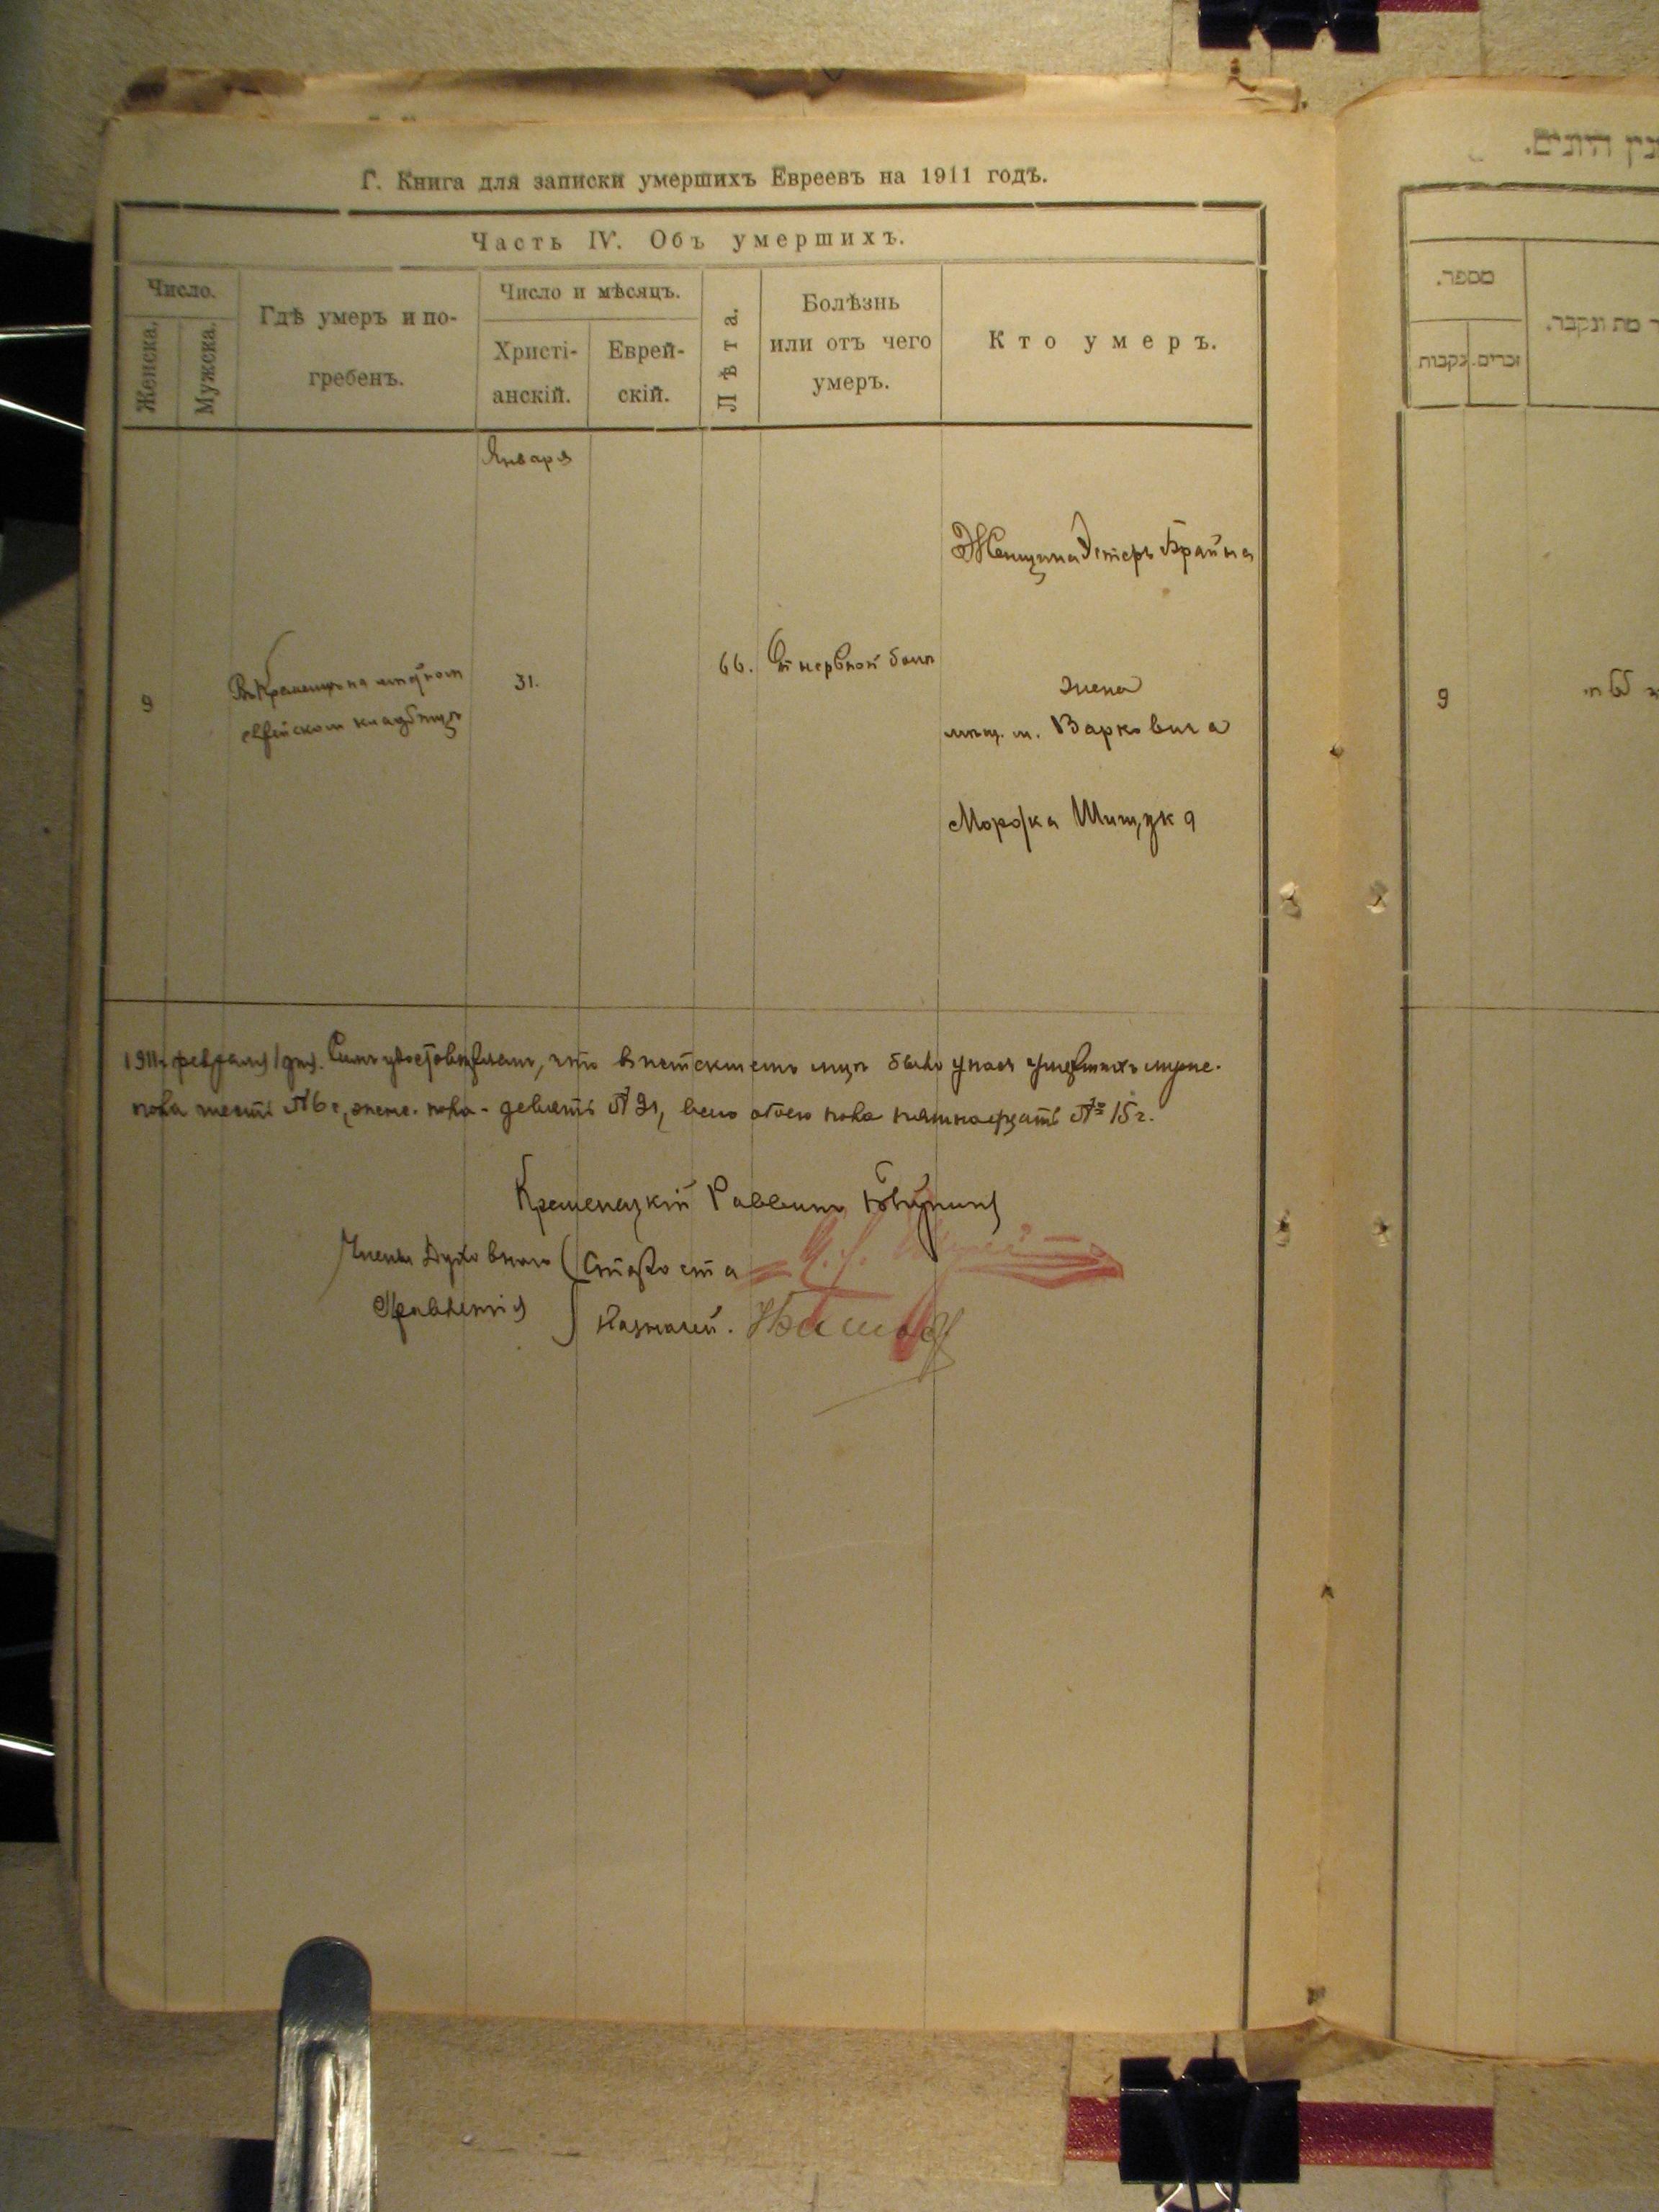 Г. Книга для записки умершихъ Евреевъ на 1911 годъ.
Часть IV. Объ умершихъ.
Число.
Женска.
Мужска.
Гдѣ умеръ и по-
гребенъ.
Число и мѣсяцъ.
Христі-
анскій.
Еврей-
скій.
Лѣта.
Болѣзнь
или отъ чего
умеръ.
Кто умеръ.
Января
Женщина Эстеръ Брайна
9
Въ Кременцѣ на
кладбищѣ
31.
66.
От нервной
жена
мѣщ. м. Варковича
Мошка Шищука
1911 г. февраля 1 дня. Симъ удостовѣряемъ, что въ истекшемъ мцѣ было у насъ умершихъ муже.
пола шесть № 6 г, женс. пола - девять № 9 г, всего обоего пола пятнадцать № 15 г.
Кременецкій Раввинъ
Члены Духовнаго
Правленія
Староста
Казначей.
מספר.
זכרים.
נקבות
מת ונקבר.
9